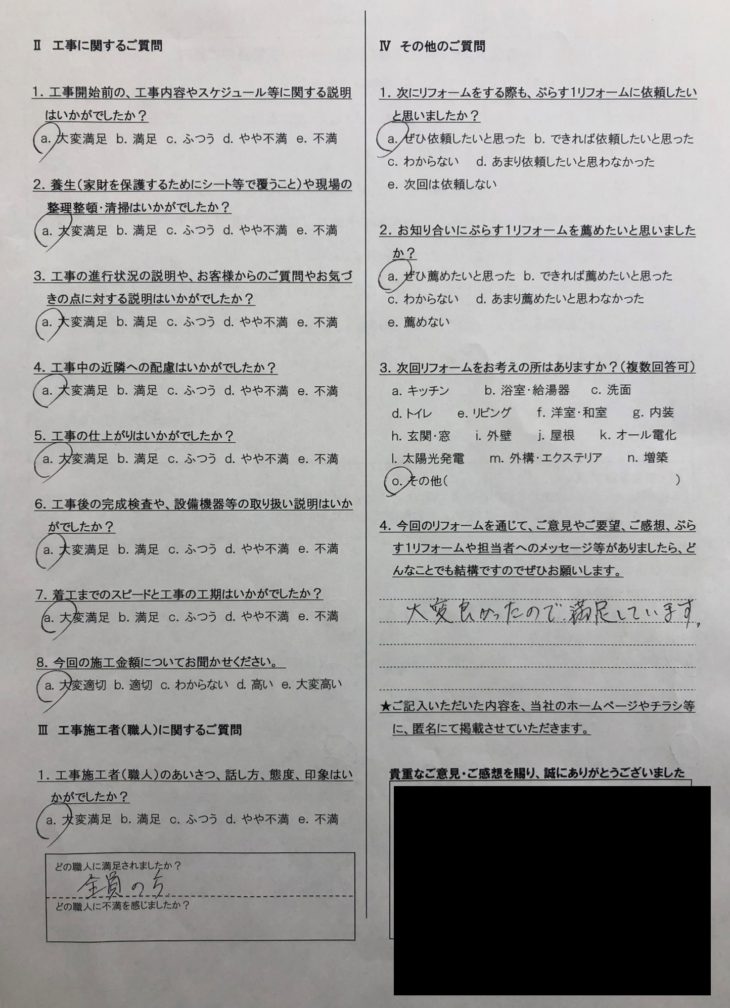 Ⅱ 工事に関するご質問
1. 工事開始前の、工事内容やスケジュール等に関する説明
はいかがでしたか？
a. 大変満足 b. 満足 c. ふつう d. やや不満 e. 不満
2. 養生(家財を保護するためにシート等で覆うこと)や現場の
整理整頓・清掃はいかがでしたか？
a. 大変満足 b. 満足 c. ふつう d. やや不満 e. 不満
3. 工事の進行状況の説明や、お客様からのご質問やお気づ
きの点に対する説明はいかがでしたか？
a. 大変満足 b. 満足 c. ふつう d. やや不満 e. 不満
4. 工事中の近隣への配慮はいかがでしたか？
a. 大変満足 b. 満足 c. ふつう d. やや不満 e. 不満
5. 工事の仕上がりはいかがでしたか？
a. 大変満足 b. 満足 c. ふつう d. やや不満 e. 不満
6. 工事後の完成検査や、設備機器等の取り扱い説明はいか
がでしたか？
a. 大変満足 b. 満足 c. ふつう d. やや不満 e. 不満
7. 着工までのスピードと工事の工期はいかがでしたか？
a. 大変満足 b. 満足 c. ふつう d. やや不満 e. 不満
8. 今回の施工金額についてお聞かせください。
a. 大変適切 b. 適切 c. わからない d. 高い e. 大変高い
Ⅲ 工事施工者(職人)に関するご質問
1. 工事施工者(職人)のあいさつ、話し方、態度、印象はい
かがでしたか？
a. 大変満足 b. 満足 c. ふつう d. やや不満 e. 不満
どの職人に満足されましたか？
全員の方
どの職人に不満を感じましたか？
Ⅳ その他のご質問
1. 次にリフォームをする際も、ぷらす1リフォームに依頼したい
と思いましたか？
a. ぜひ依頼したいと思った b. できれば依頼したいと思った
c. わからない d. あまり依頼したいと思わなかった
e. 次回は依頼しない
2. お知り合いにぷらす1リフォームを薦めたいと思いました
か？
a. ぜひ薦めたいと思った b. できれば薦めたいと思った
c. わからない d. あまり薦めたいと思わなかった
e. 薦めない
3. 次回リフォームをお考えの所はありますか？(複数回答可)
a. キッチン b. 浴室・給湯器 c. 洗面
d. トイレ e. リビング f. 洋室・和室 g. 内装
h. 玄関・窓 i. 外壁 j. 屋根 k. オール電化
l. 太陽光発電 m. 外構・エクステリア n. 増築
o. その他( )
4. 今回のリフォームを通じて、ご意見やご要望、ご感想、ぷら
す1リフォームや担当者へのメッセージ等がありましたら、ど
んなことでも結構ですのでぜひお願いします。
大変良かったので、満足しています。
★ご記入いただいた内容を、当社のホームページやチラシ等
に、匿名にて掲載させていただきます。
貴重なご意見・ご感想を賜り、誠にありがとうございました